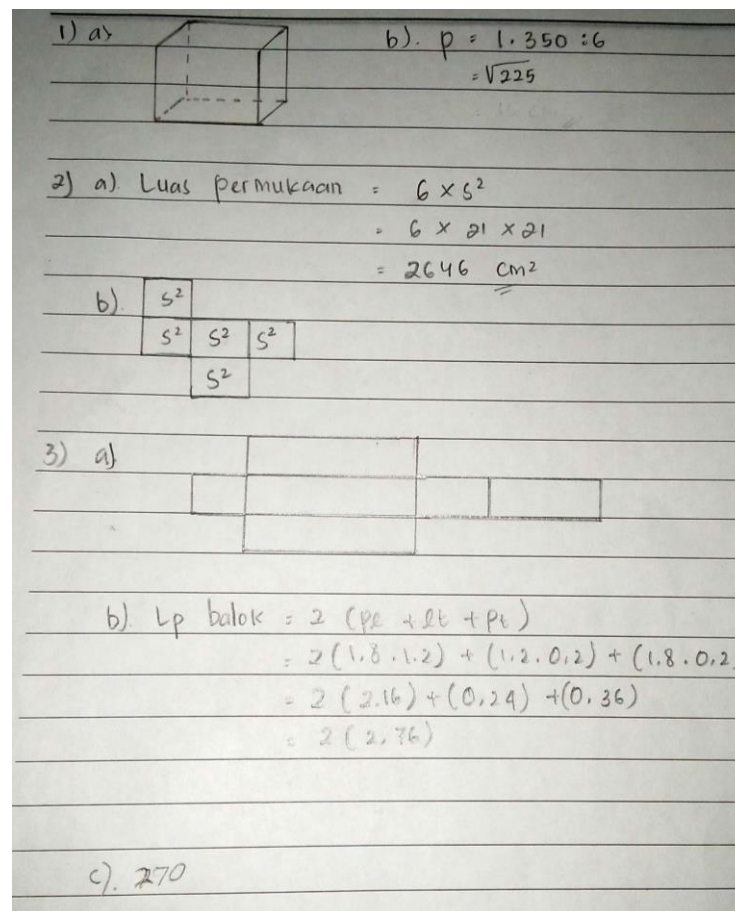 1) a)
b). p = 1.350 : 6
= √225
2) a). Luas permukaan = 6 × s²
= 6 × 21 × 21
= 2646 cm²
b).
s²
s² s² s²
s²
3) a)
b). Lp balok = 2 (pl + lt + pt)
= 2 (1,8 . 1.2) + (1,2 . 0,2) + (1,8 . 0,2
= 2 (2.16) + (0,24) + (0,36)
= 2 (2,76)
c). 270